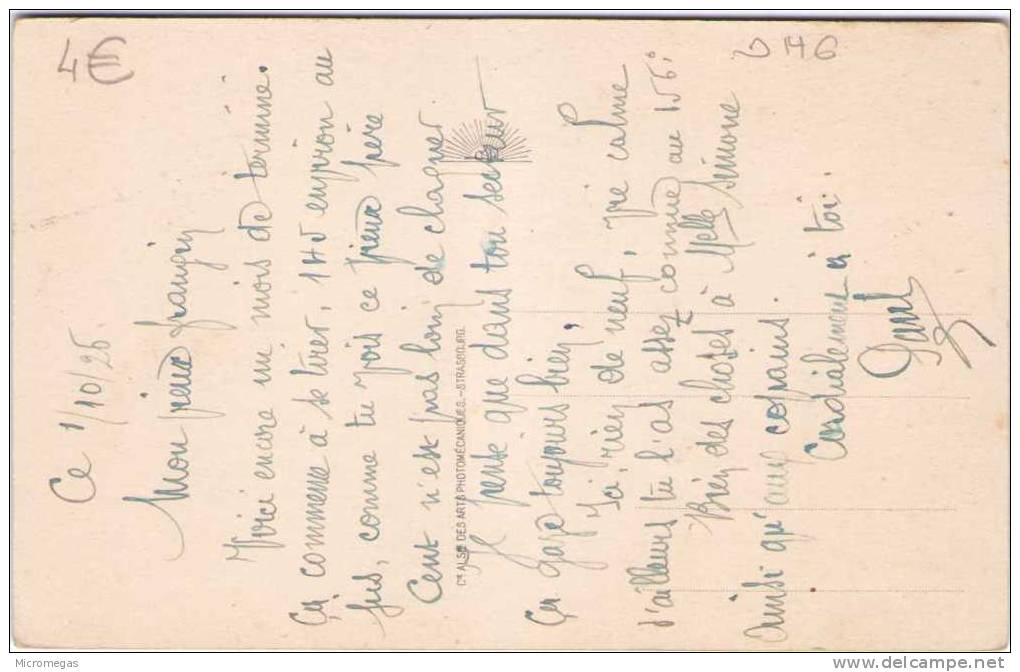 Ce 1/10/25
Mon vieux frangin
Voici encore un mois de terminé.
Ça commence à se tirer, 145 environ au
jus, comme tu vois ce vieux père
Cent n'est pas loin de
Je pense que dans ton secteur
Ça gaze toujours bien,
Ici, rien de neuf, vie calme
d'ailleurs tu l'as assez connue au 156:
Bien des choses à Melle Simone
ainsi qu'aux copains.
Cordialement à toi.
Paul
Cie ALSne DES ARTS PHOTOMÉCANIQUES.-STRASBOURG.
4€
Micromegas
www.delcampe.net